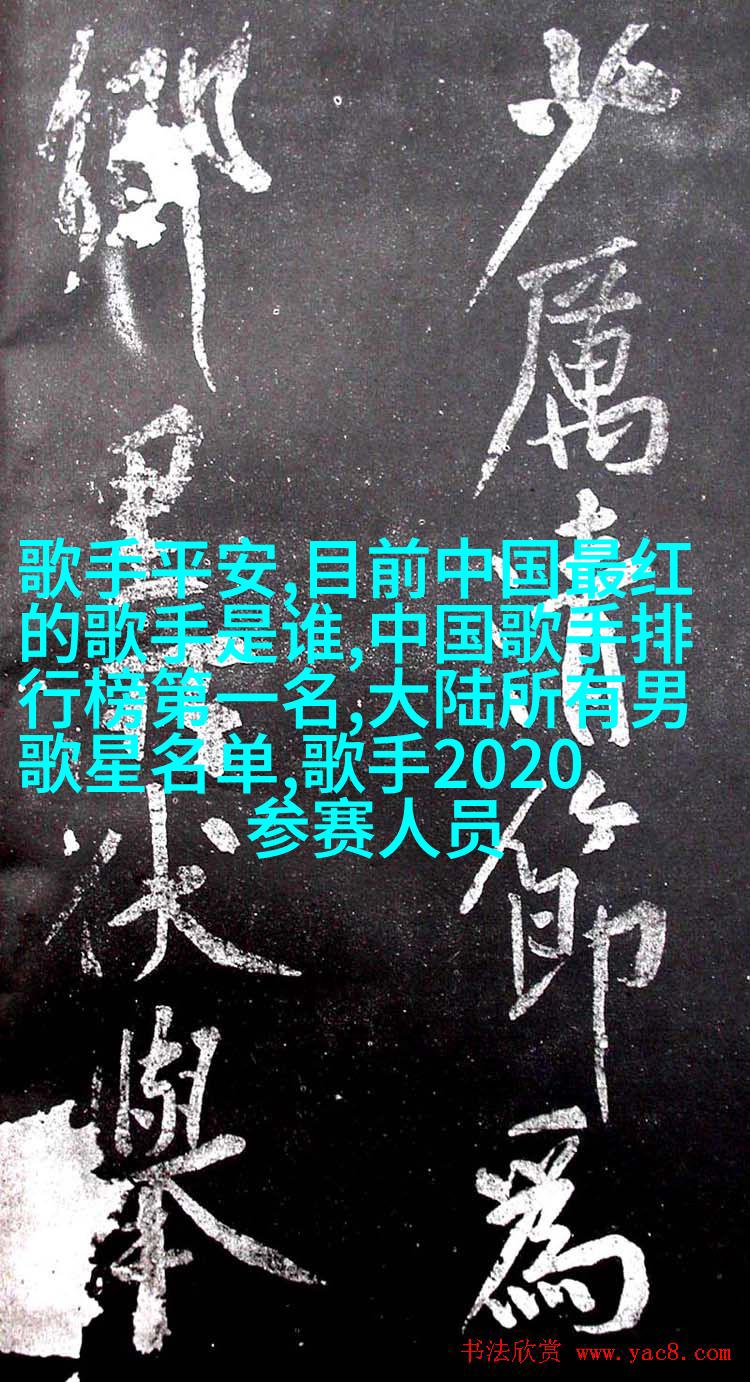 少厲清節為
鄉里伏舉
歌手平安,目前中国最红
的歌手是谁,中国歌手排
行榜第一名,大陆所有男
歌星名单,歌手2020
参赛人员
书法欣赏 www.yac8.com